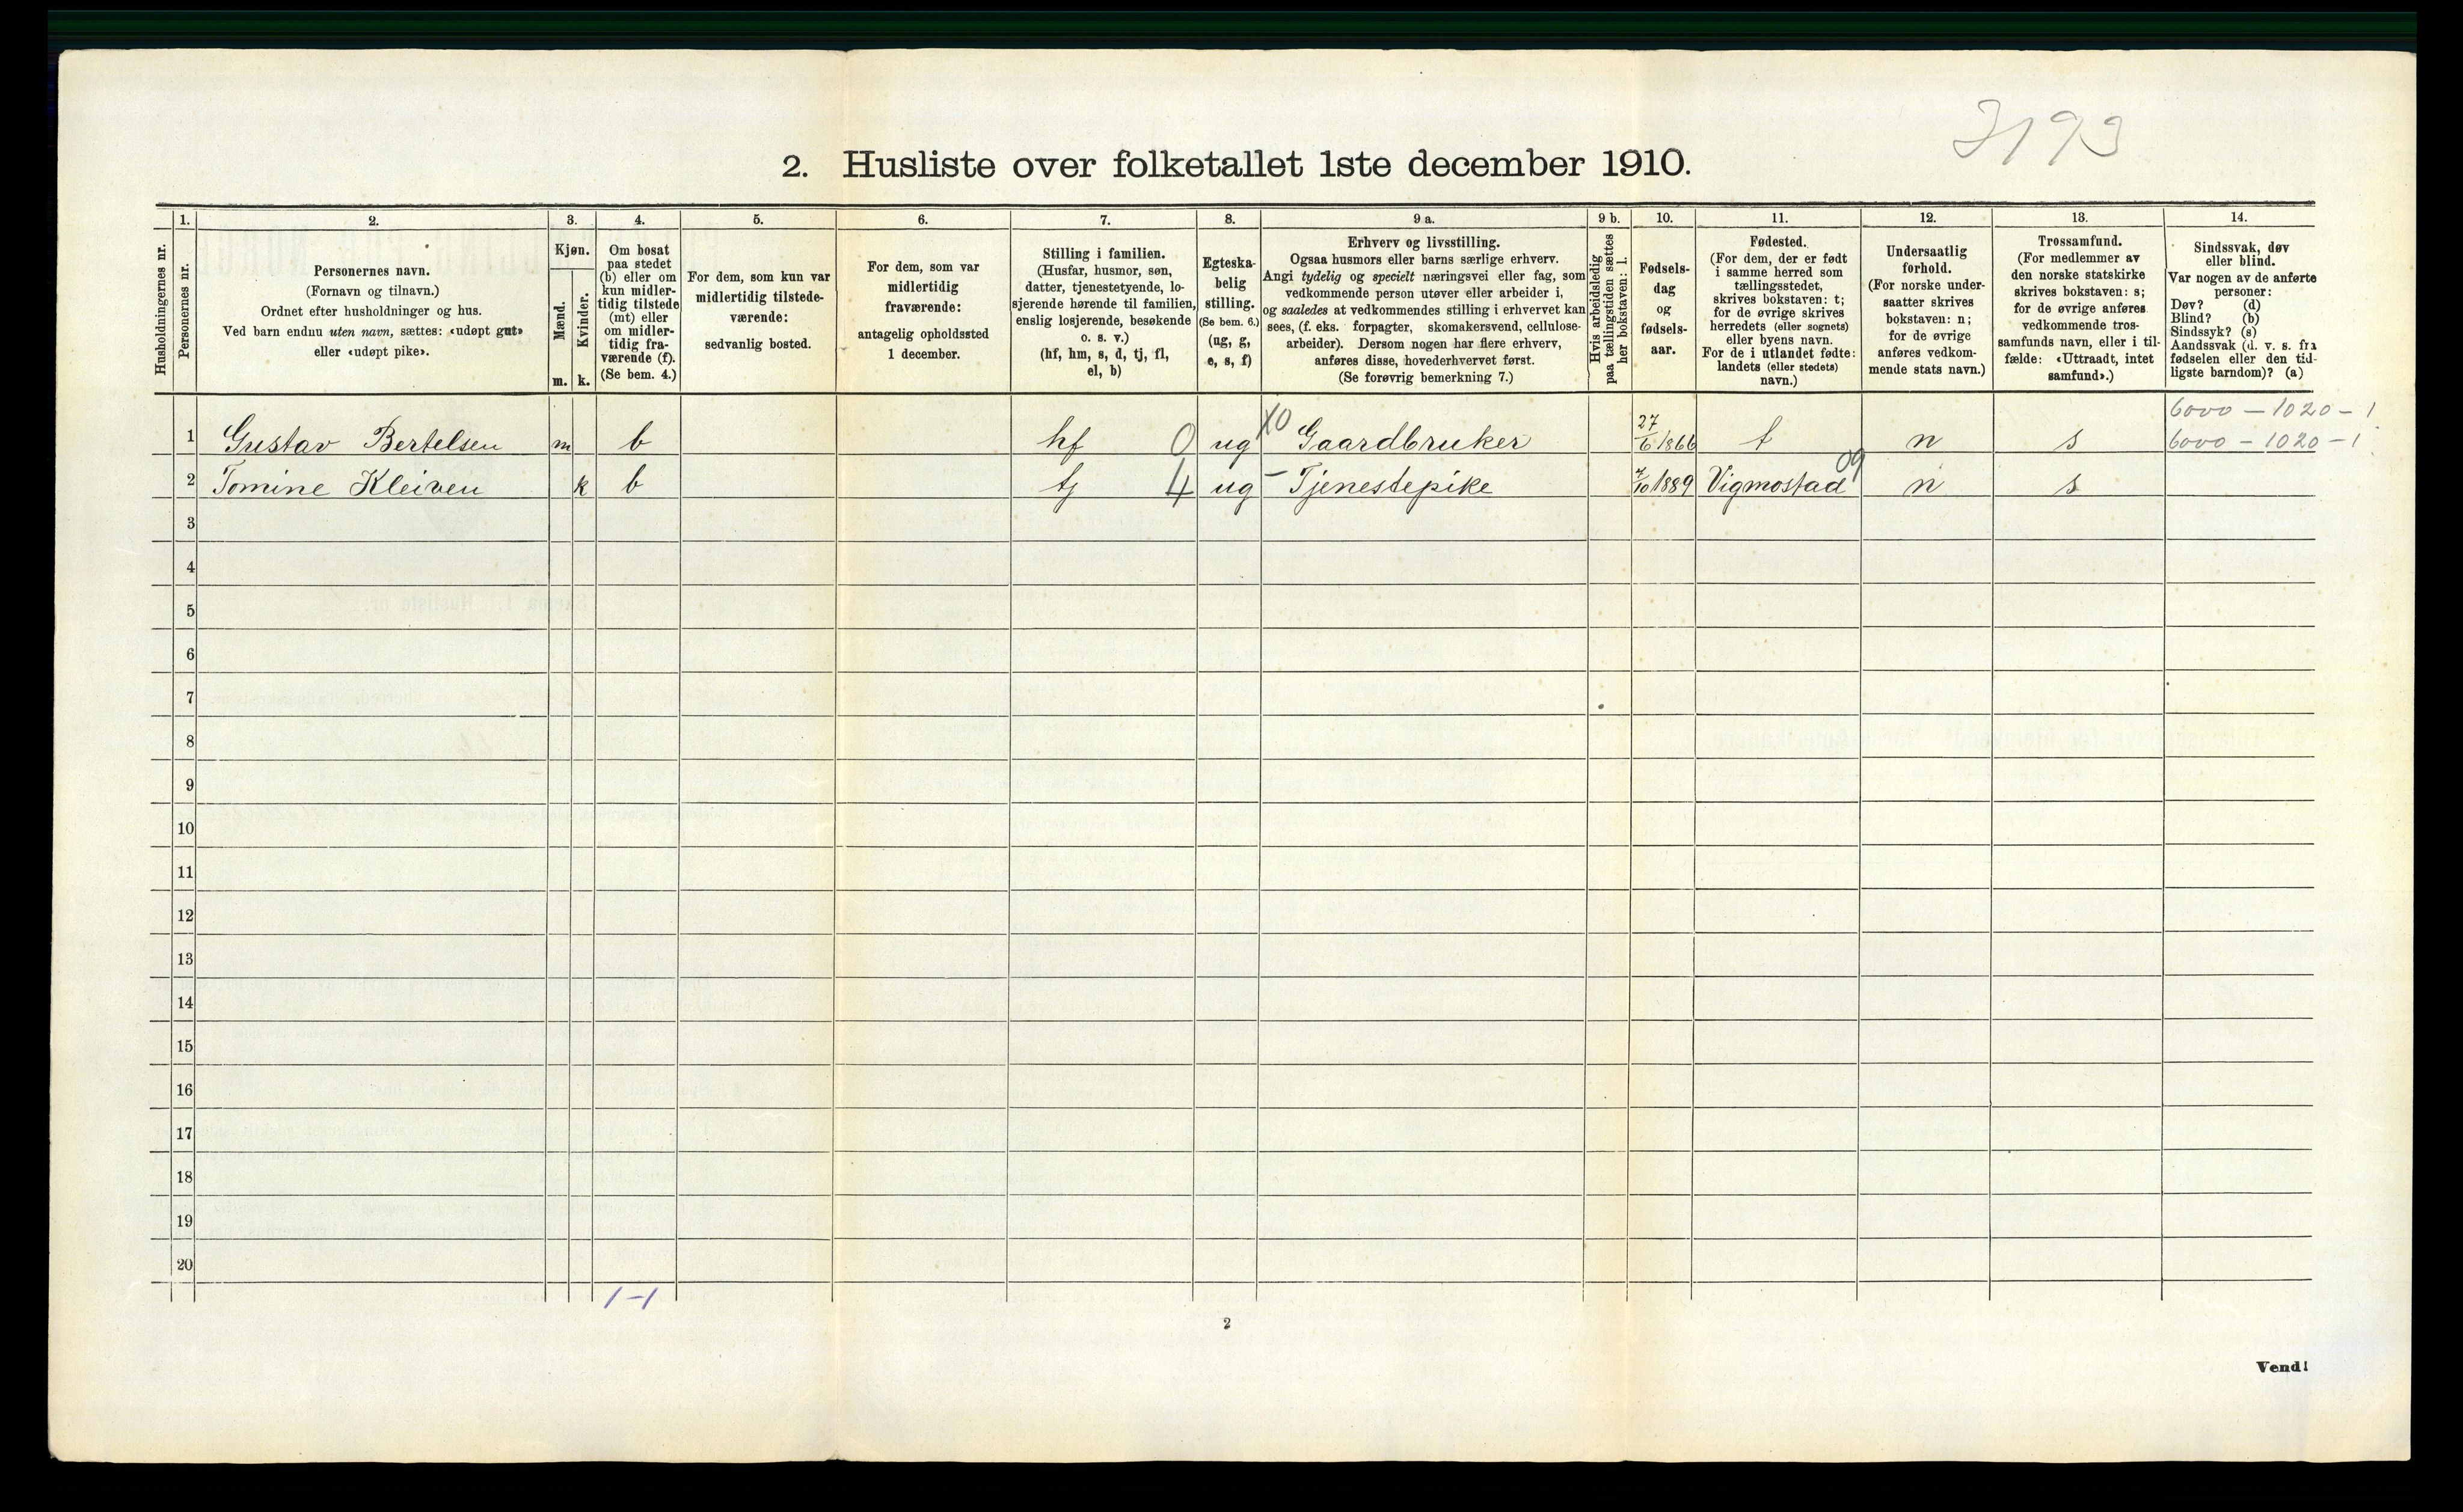 3193
2. Husliste over folketallet 1ste december 1910.
1. 2. 3. 4. 5. 6. 7. 8. 9 a. 9 b. 10. 11. 12. 13. 14.
Husholdningernes nr.
Personernes nr.
Personernes navn.
(Fornavn og tilnavn.)
Ordnet efter husholdninger og hus.
Ved barn endnu uten navn, sættes: «udøpt gut»
eller «udøpt pike».
Kjøn.
Mænd.
Kvinder.
m. k.
Om bosat
paa stedet
(b) eller om
kun midler-
tidig tilstede
(mt) eller
om midler-
tidig fra-
værende (f).
(Se bem. 4.)
For dem, som kun var
midlertidig tilstede-
værende:
sedvanlig bosted.
For dem, som var
midlertidig
fraværende:
antagelig opholdssted
1 december.
Stilling i familien.
(Husfar, husmor, søn,
datter, tjenestetyende, lo-
sjerende hørende til familien,
enslig losjerende, besøkende
o. s. v.)
(hf, hm, s, d, tj, fl,
el, b)
Egteska-
belig
stilling.
(Se bem. 6.)
(ug, g,
e, s, f)
Erhverv og livsstilling.
Ogsaa husmors eller barns særlige erhverv.
Angi tydelig og specielt næringsvei eller fag, som
vedkommende person utøver eller arbeider i,
og saaledes at vedkommendes stilling i erhvervet kan
sees, (f. eks. forpagter, skomakersvend, cellulose-
arbeider). Dersom nogen har flere erhverv,
anføres disse, hovederhvervet først.
(Se forøvrig bemerkning 7.)
Hvis arbeidsledig
paa tællingstiden sættes
her bokstaven: l.
Fødsels-
dag
og
fødsels-
aar.
Fødested.
(For dem, der er født
i samme herred som
tællingsstedet,
skrives bokstaven: t;
for de øvrige skrives
herredets (eller sognets)
eller byens navn.
For de i utlandet fødte:
landets (eller stedets)
navn.)
Undersaatlig
forhold.
(For norske under-
saatter skrives
bokstaven: n;
for de øvrige
anføres vedkom-
mende stats navn.)
Trossamfund.
(For medlemmer av
den norske statskirke
skrives bokstaven: s;
for de øvrige anføres
vedkommende tros-
samfunds navn, eller i til-
fælde: «Uttraadt, intet
samfund».)
Sindssvak, døv
eller blind.
Var nogen av de anførte
personer:
Døv? (d)
Blind? (b)
Sindssyk? (s)
Aandssvak (d. v. s. fra
fødselen eller den tid-
ligste barndom)? (a)
6000 - 1020 - 1
1 Gustav Bertelsen m b hf 0 ug X0 Gaardbruker 27/6 1866 t n s 6000 - 1020 - 1
2 Tomine Kleiven k b tj 4 ug - Tjenestepike /10 1889 Vigmostad 09 n s
3
4
5
6
7
8
9
10
11
12
13
14
15
16
17
18
19
20
1-1
2
Vend!